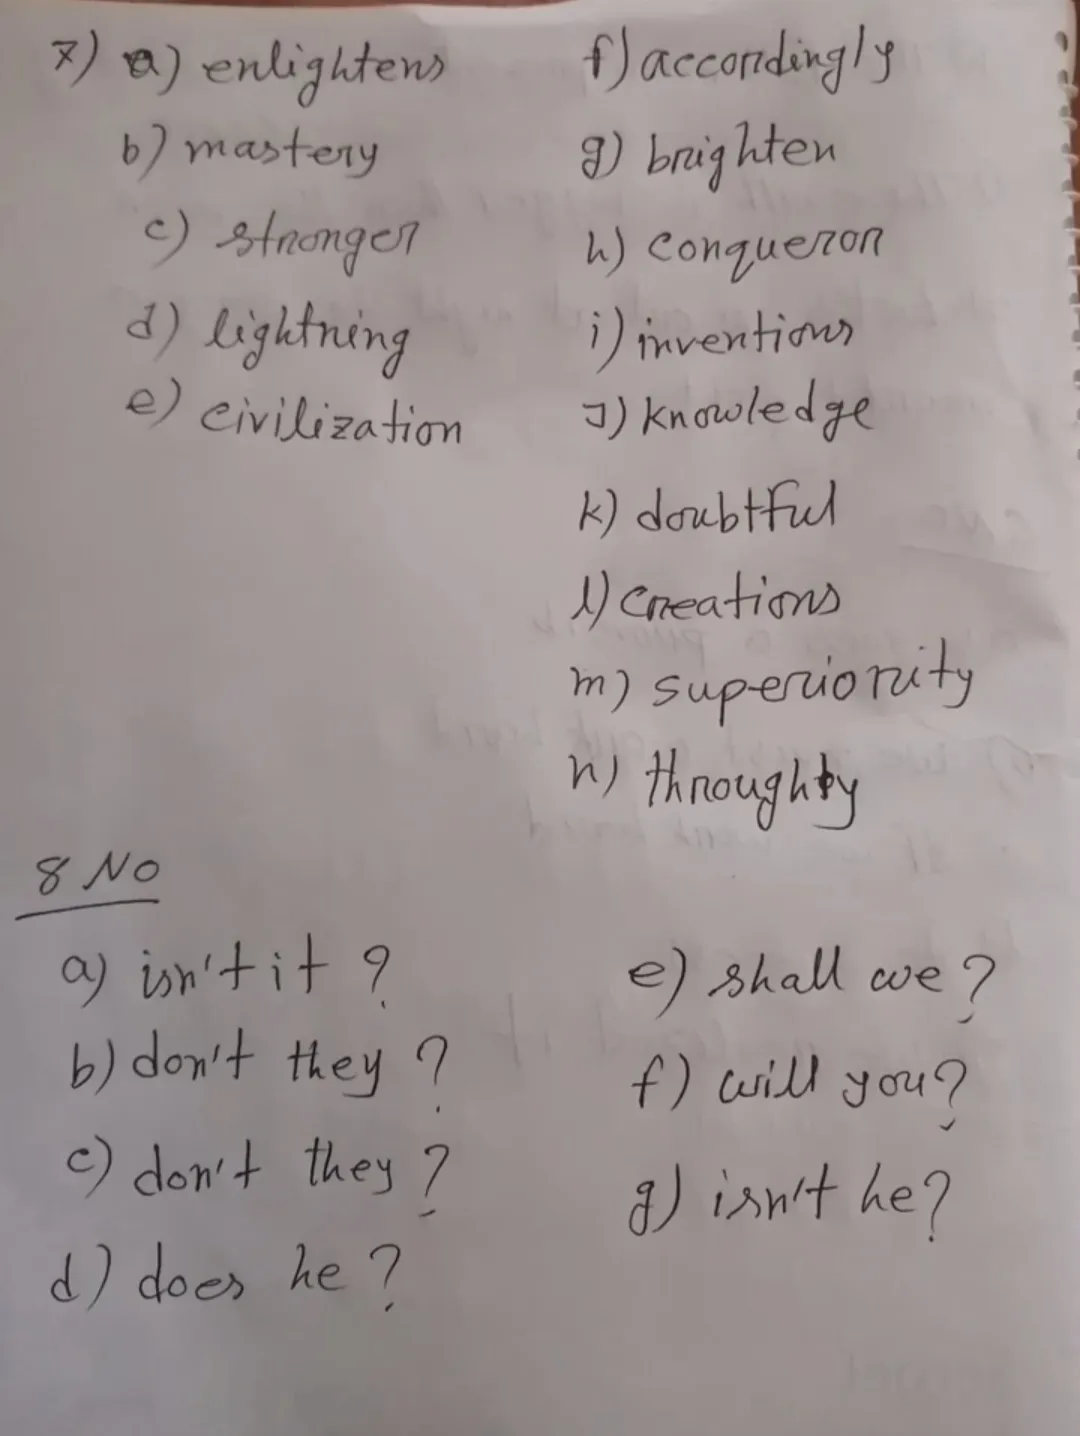 7) a) enlightens
b) mastery
c) stronger
d) lightning
e) civilization
f) accordingly
g) brighten
h) conqueror
i) inventions
J) knowledge
k) doubtful
l) creations
m) superiority
n) throughty
8 No
a) isn't it ?
b) don't they ?
c) don't they ?
d) does he ?
e) shall we ?
f) will you ?
g) isn't he ?